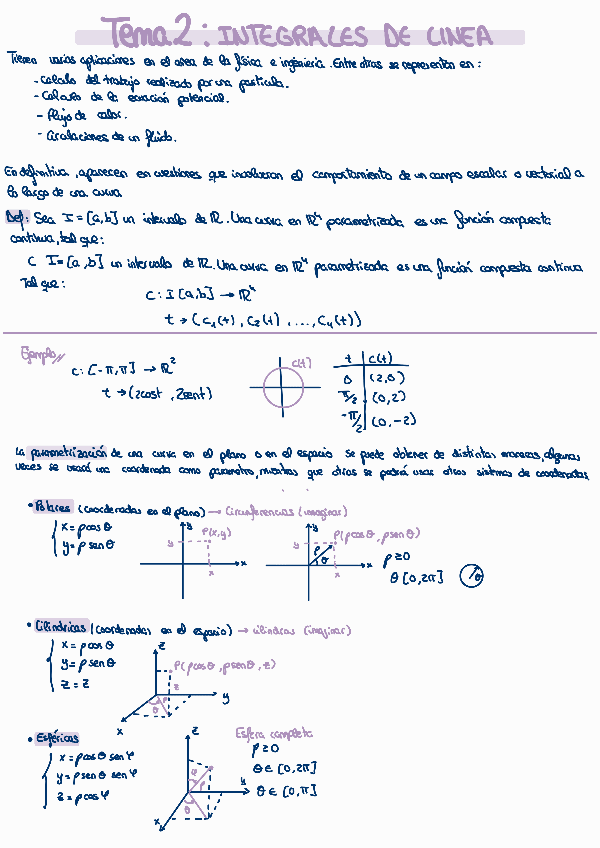 Tema 2: INTEGRALES DE LINEA
Tienen varias aplicaciones en el area de la física e ingeniería. Entre otras se representan en:
- Calculo del trabajo realizado por una partícula.
- Calculo de la ecuación potencial.
- Flujo de calor.
- Circulaciones de un fluido.
En definitiva, aparecen en cuestiones que involucran el comportamiento de un campo escalar o vectorial a
lo largo de una curva
Def: Sea I = [a,b] un intervalo de ℝ. Una curva en ℝⁿ parametrizada es una función compuesta
continua, tal que:
C I=[a,b] un intervalo de ℝ. Una curva en ℝⁿ parametrizada es una función compuesta continua
Tal que:
C: I [a,b] → ℝⁿ
t → (C₁(t), C₂(t), ..., Cₙ(t))
Ejemplo//
C: [-π,π] → ℝ²
t → (2cost, 2sent)
C(t)
t C(t)
0 (2,0)
π/2 (0,2)
-π/2 (0,-2)
La parametrización de una curva en el plano o en el espacio se puede obtener de distintas maneras, algunas
veces se usará una coordenada como parámetro, mientras que otras se podrá usar otros sistemas de coordenadas
• Polares (coordenadas en el plano) → Circunferencias (imaginar)
x = ρ cos θ
y = ρ sen θ
y
P(x,y)
y
x
x
y
P(ρcosθ, ρsenθ)
y
ρ
θ
x
x
ρ≥0
θ [0,2π]
θ
• Cilíndricas (coordenadas en el espacio) → cilindros (imaginar)
x = ρ cos θ
y = ρ sen θ
z = z
z
P(ρcosθ, ρsenθ, z)
z
θ
ρ
y
x
• Esféricas
x = ρ cos θ sen φ
y = ρ sen θ sen φ
z = ρ cos φ
z
φ
ρ
θ
y
x
Esfera completa
ρ≥0
θ ∈ [0,2π]
θ ∈ [0,π]